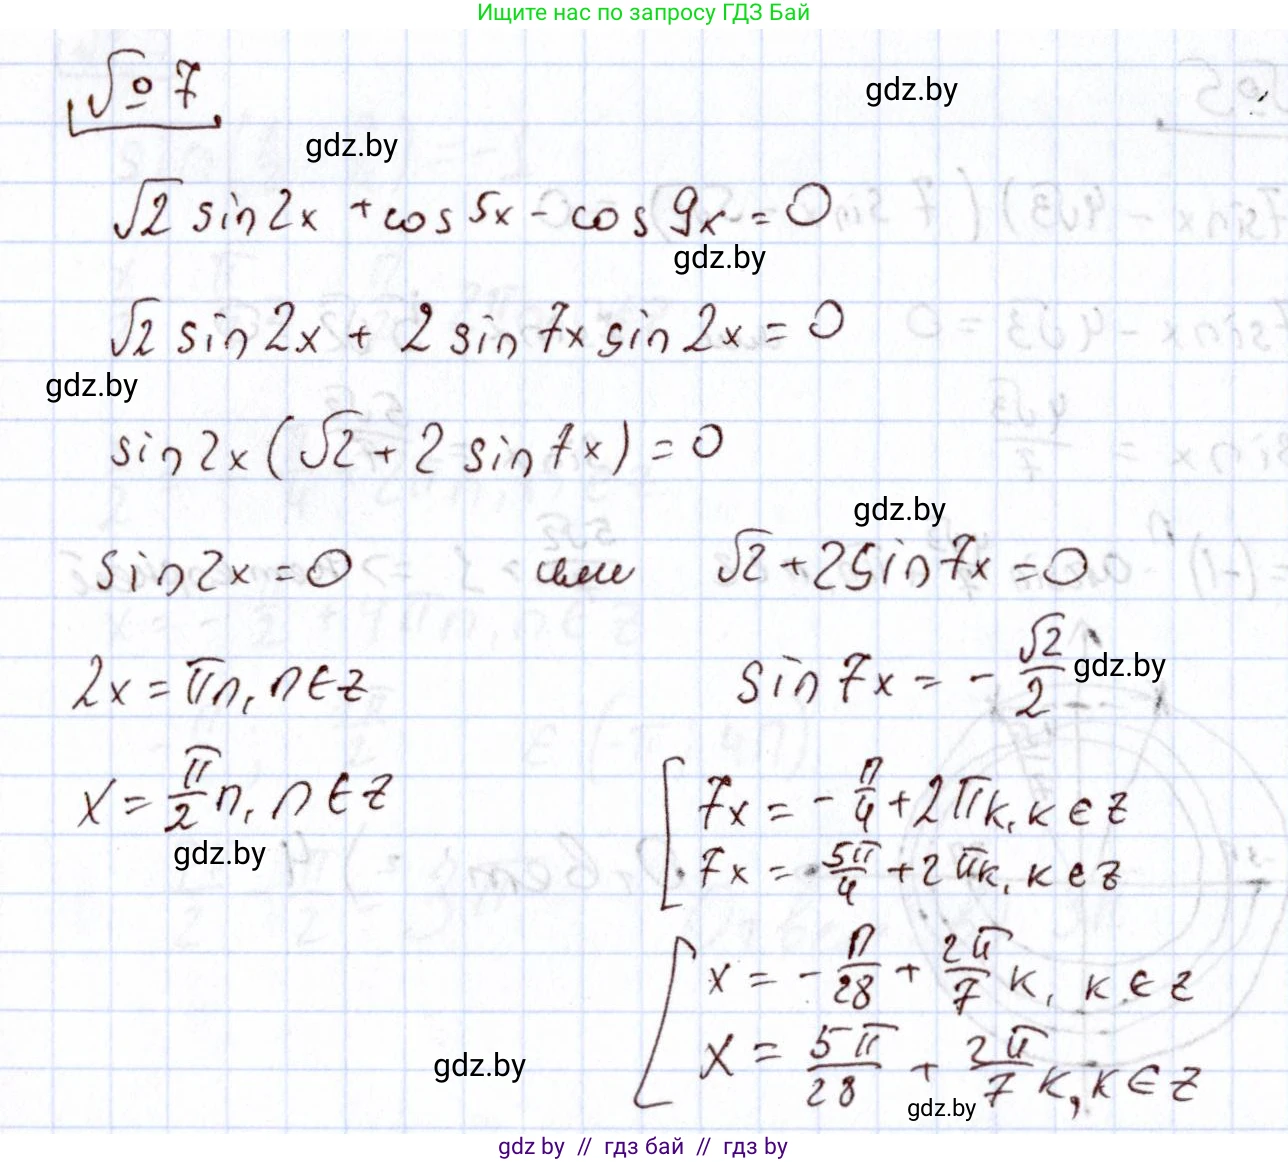 Ищите нас по запросу ГДЗ Бай
№ 7
gdz.by
gdz.by
√2 sin2x + cos5x - cos9x = 0
gdz.by
√2 sin2x + 2 sin7x sin2x = 0
gdz.by
sin2x(√2 + 2 sin7x) = 0
gdz.by
sin2x = 0 или √2 + 2sin7x = 0
2x = πn, n ∈ z
sin7x = - √2/2
gdz.by
x = π/2 n, n ∈ z
gdz.by
[ 7x = - π/4 + 2πk, k ∈ z
7x = - 5π/4 + 2πk, k ∈ z
[ x = - π/28 + 2π/7 k, k ∈ z
x = 5π/28 + 2π/7 k, k ∈ z
gdz.by
gdz.by
gdz by // гдз бай // гдз by